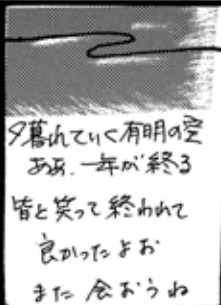 夕暮れていく有明の空
ああ、一年が終る
皆と笑って終われて
良かったよお
また会おうね